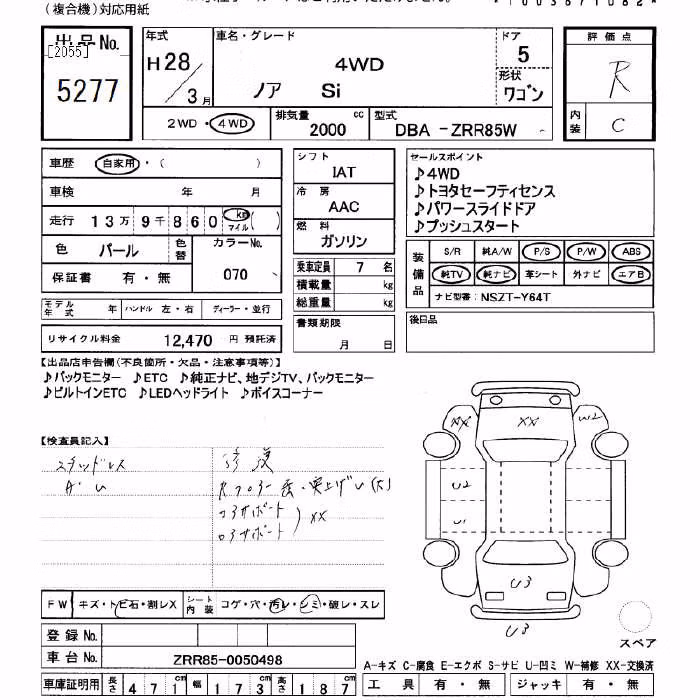 (複合機)対応用紙
出品No.
[2055]
5277
年式
H28/3月
車名・グレード
4WD
ノア Si
ドア
5
形状
ワゴン
評価点
R
内装
C
2WD・4WD
排気量
2000 cc
型式
DBA -ZRR85W
車歴 自家用・( )
車検 年 月
走行 13万9千860 km マイル ( )
色 パール 色替 カラーNo. 070
保証書 有・無
モデル年式 年 ハンドル 左・右 ディーラー・並行
リサイクル料金 12,470 円 預託済
シフト
IAT
冷房
AAC
燃料
ガソリン
乗車定員 7 名
積載量 kg
総重量 kg
書類期限
月 日
セールスポイント
♪4WD
♪トヨタセーフティセンス
♪パワースライドドア
♪プッシュスタート
装備品
S/R 純A/W P/S P/W ABS
純TV 純ナビ 革シート 外ナビ エアB
ナビ型番: NSZT-Y64T
後日品
【出品店申告欄(不良箇所・欠品・注意事項等)】
♪バックモニター ♪ETC ♪純正ナビ、地デジTV、バックモニター
♪ビルトインETC ♪LEDヘッドライト ♪ボイスコーナー
【検査員記入】
スタッドレス
A・U
コアサポート
ロアサポート
XX
XX
XX
W2
U2
U1
U3
U3
スペア
FW キズ・トビ石・割レX シート内装 コゲ・穴・汚レ・シミ・破レ・スレ
登録No.
車台No. ZRR85-0050498
車庫証明用 長さ 471cm 幅 173cm 高さ 187cm
A-キズ C-腐食 E-エクボ S-サビ U-凹ミ W-補修 XX-交換済
工具 有・無 ジャッキ 有・無